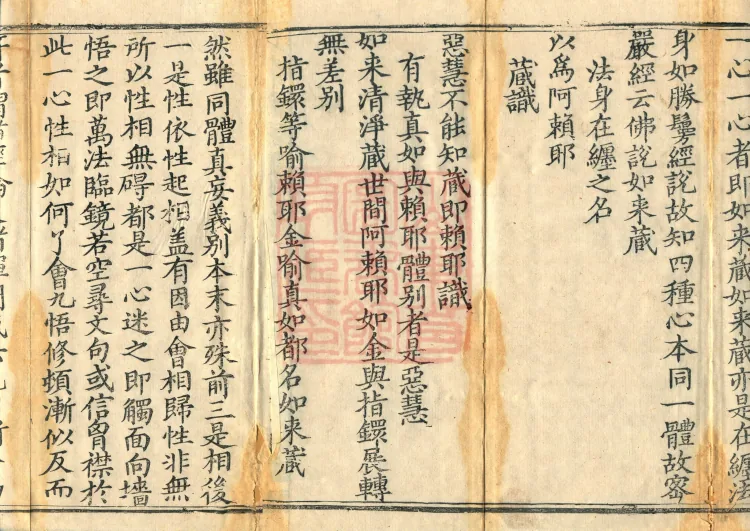 一心一心者即如来藏如来藏亦是在纏法
身如勝鬘經說故知四種心本同一體故密
嚴經云佛說如来藏
法身在纏之名
以爲阿賴耶
藏識
惡慧不能知藏即賴耶識
有執真如與賴耶體別者是惡慧
如来清淨藏世間阿賴耶如金與指鐶展轉
無差別
指鐶等喻賴耶金喻真如都名如来藏
然雖同體真妄義別本末亦殊前三是相後
一是性依性起相盖有因由會相歸性非無
所以性相無碍都是一心迷之即觸面向墙
悟之即萬法臨鏡若空尋文句或信胷襟於
此一心性相如何了會凡悟修頓漸似反而